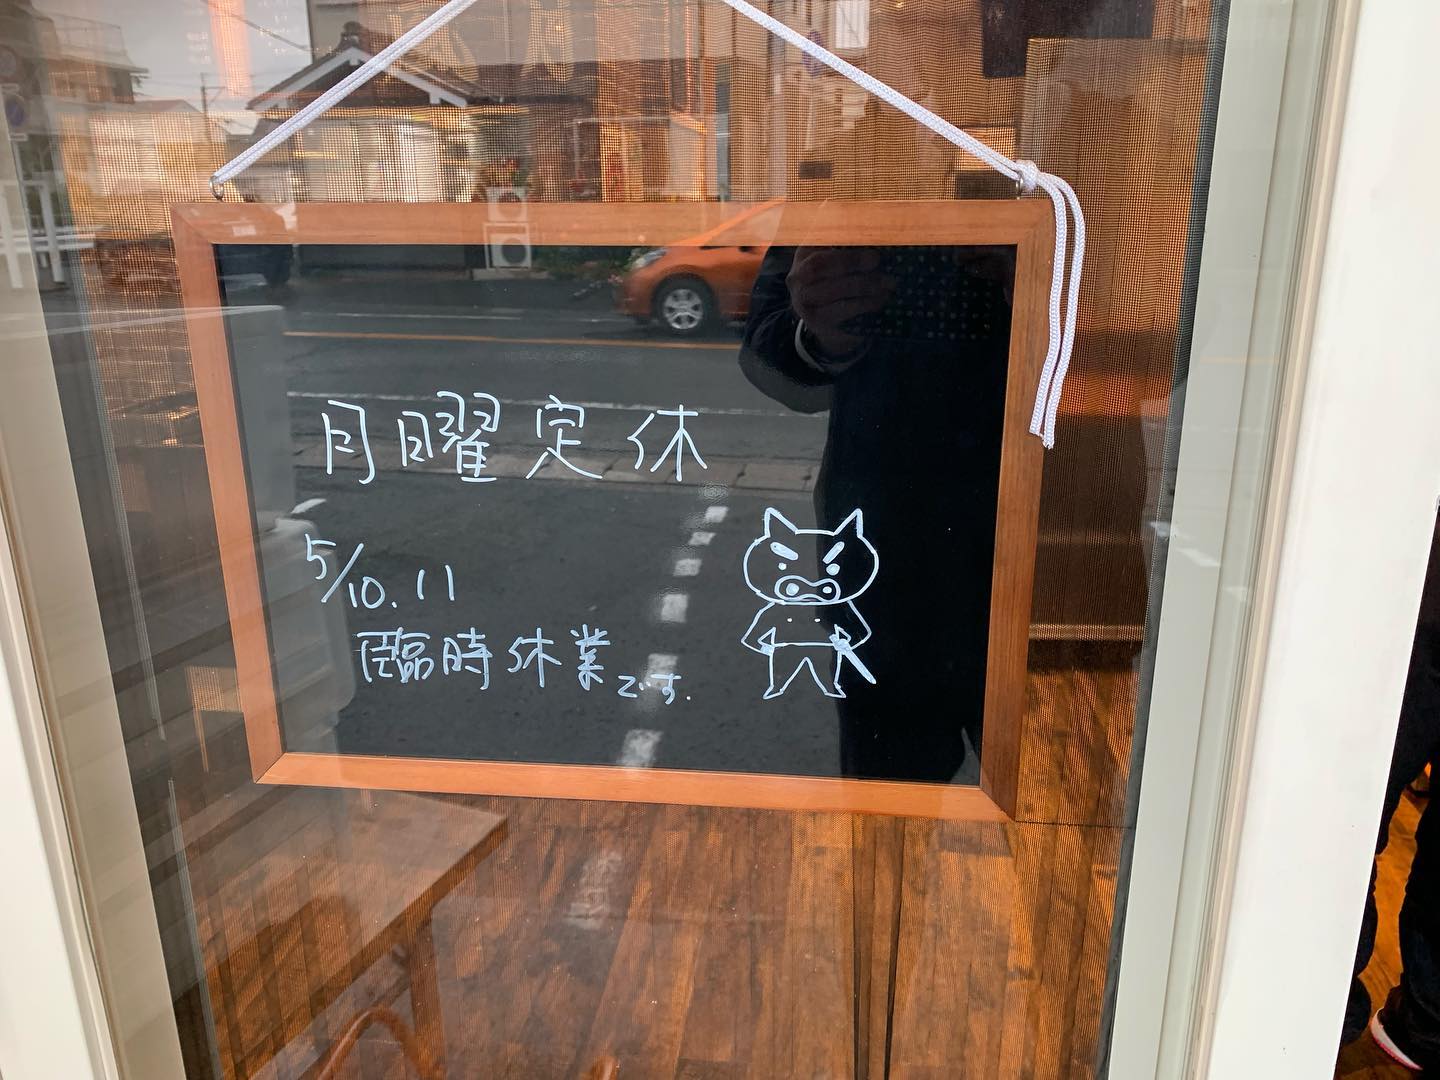 月曜定休
5/10.11
臨時休業です.